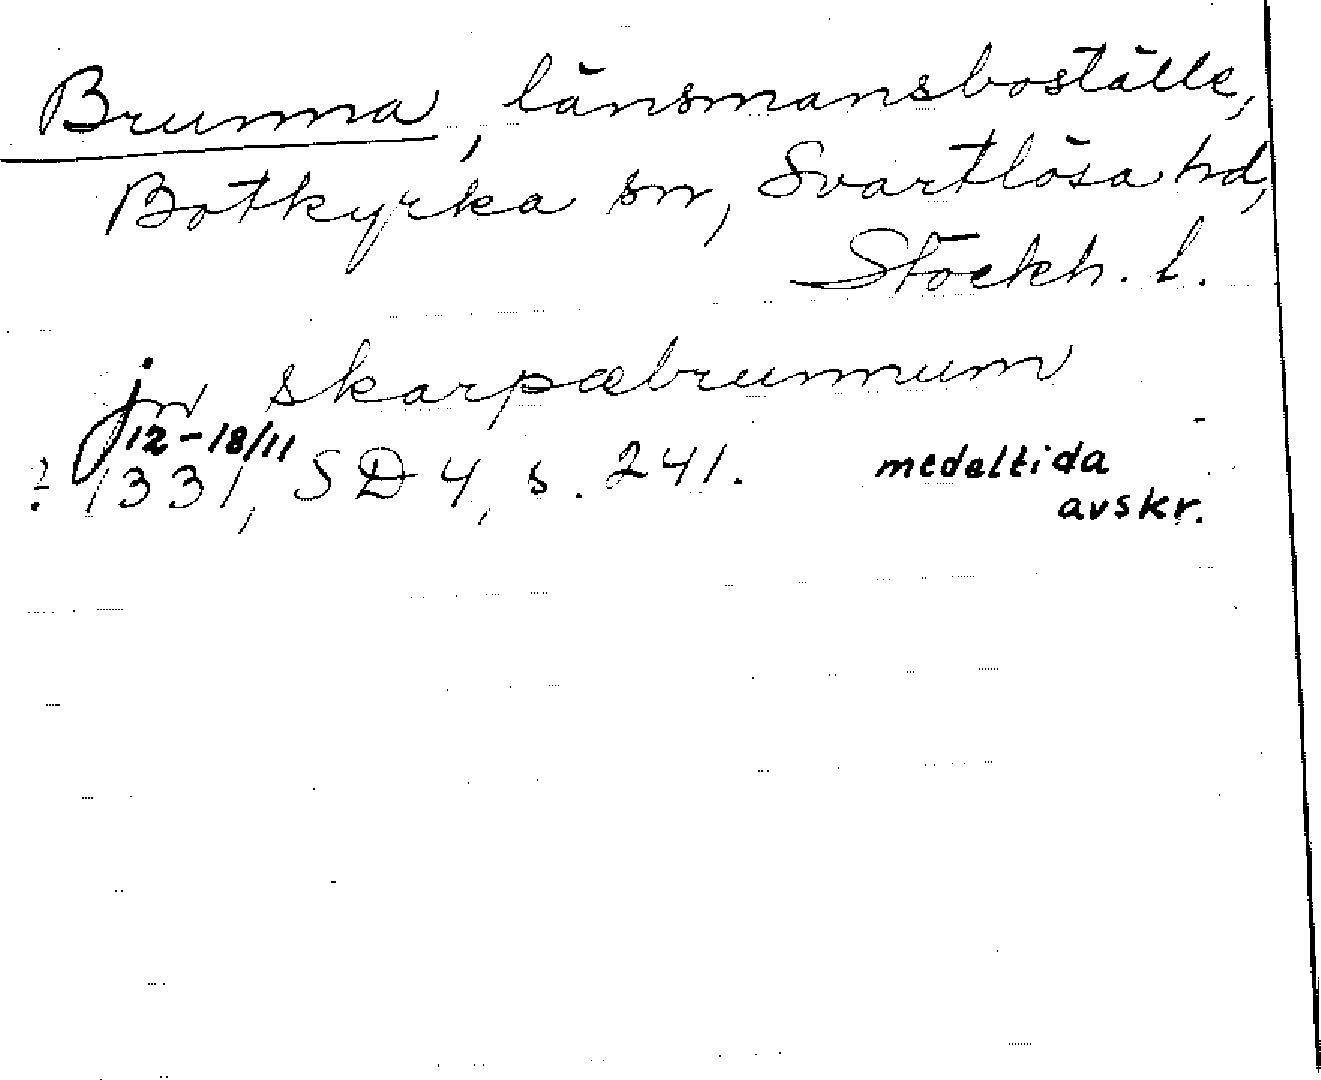 Brunna, länsmansboställe,
Botkyrka sn, Svartlösa hd,
Stockh. l.
jn skarpæbrunnum
12-18/11
? 1331, SD 4, s. 241. medeltida
avskr.